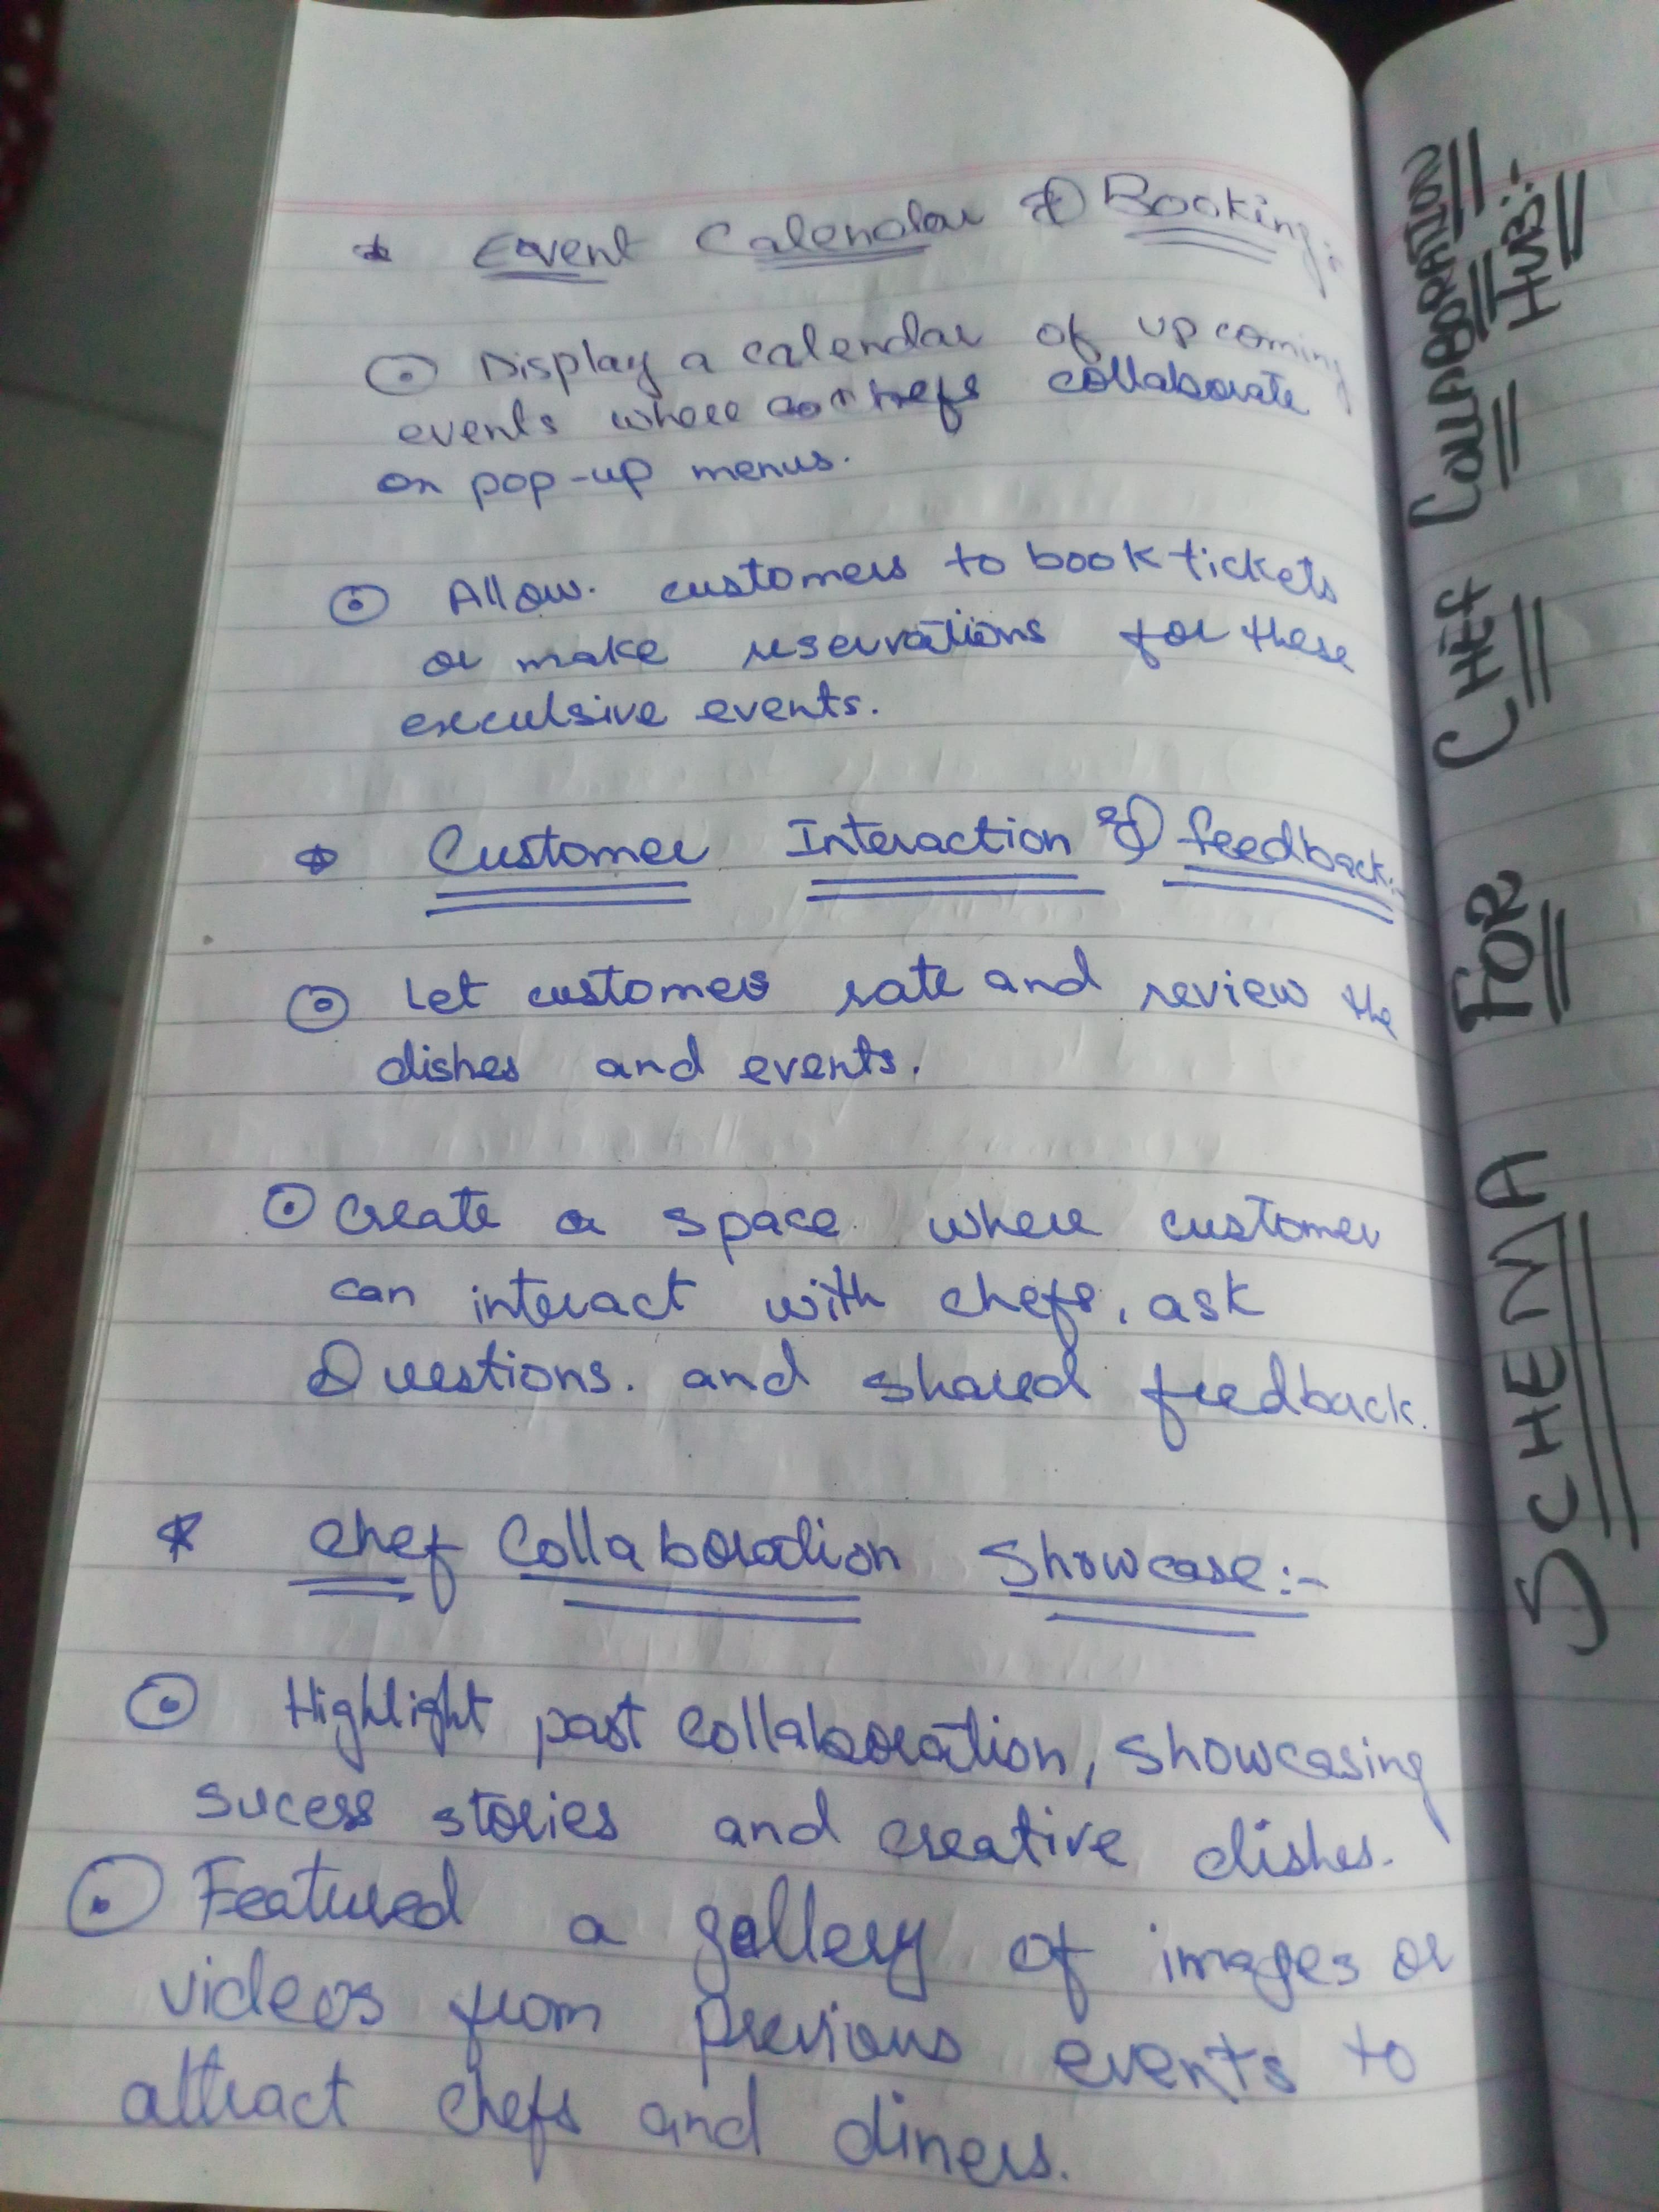 * Event Calendar & Booking:
⊙ Display a calendar of upcoming
events where chefs collaborate
on pop-up menus.
⊙ Allow. customers to book tickets
or make reservations for these
exculsive events.
* Customer Interaction & feedback:-
⊙ Let customers rate and review the
dishes and events.
⊙ Create a space where customer
can interact with chefs, ask
Questions. and shared feedback.
* Chef Collaboration Showcase:-
⊙ Highlight past collaboration, showcasing
sucess stories and creative dishes.
⊙ Featured a gallery of images or
videos from previous events to
attract chefs and diners.
SCHEMA FOR CHEF COLLABORATION
HUB:-